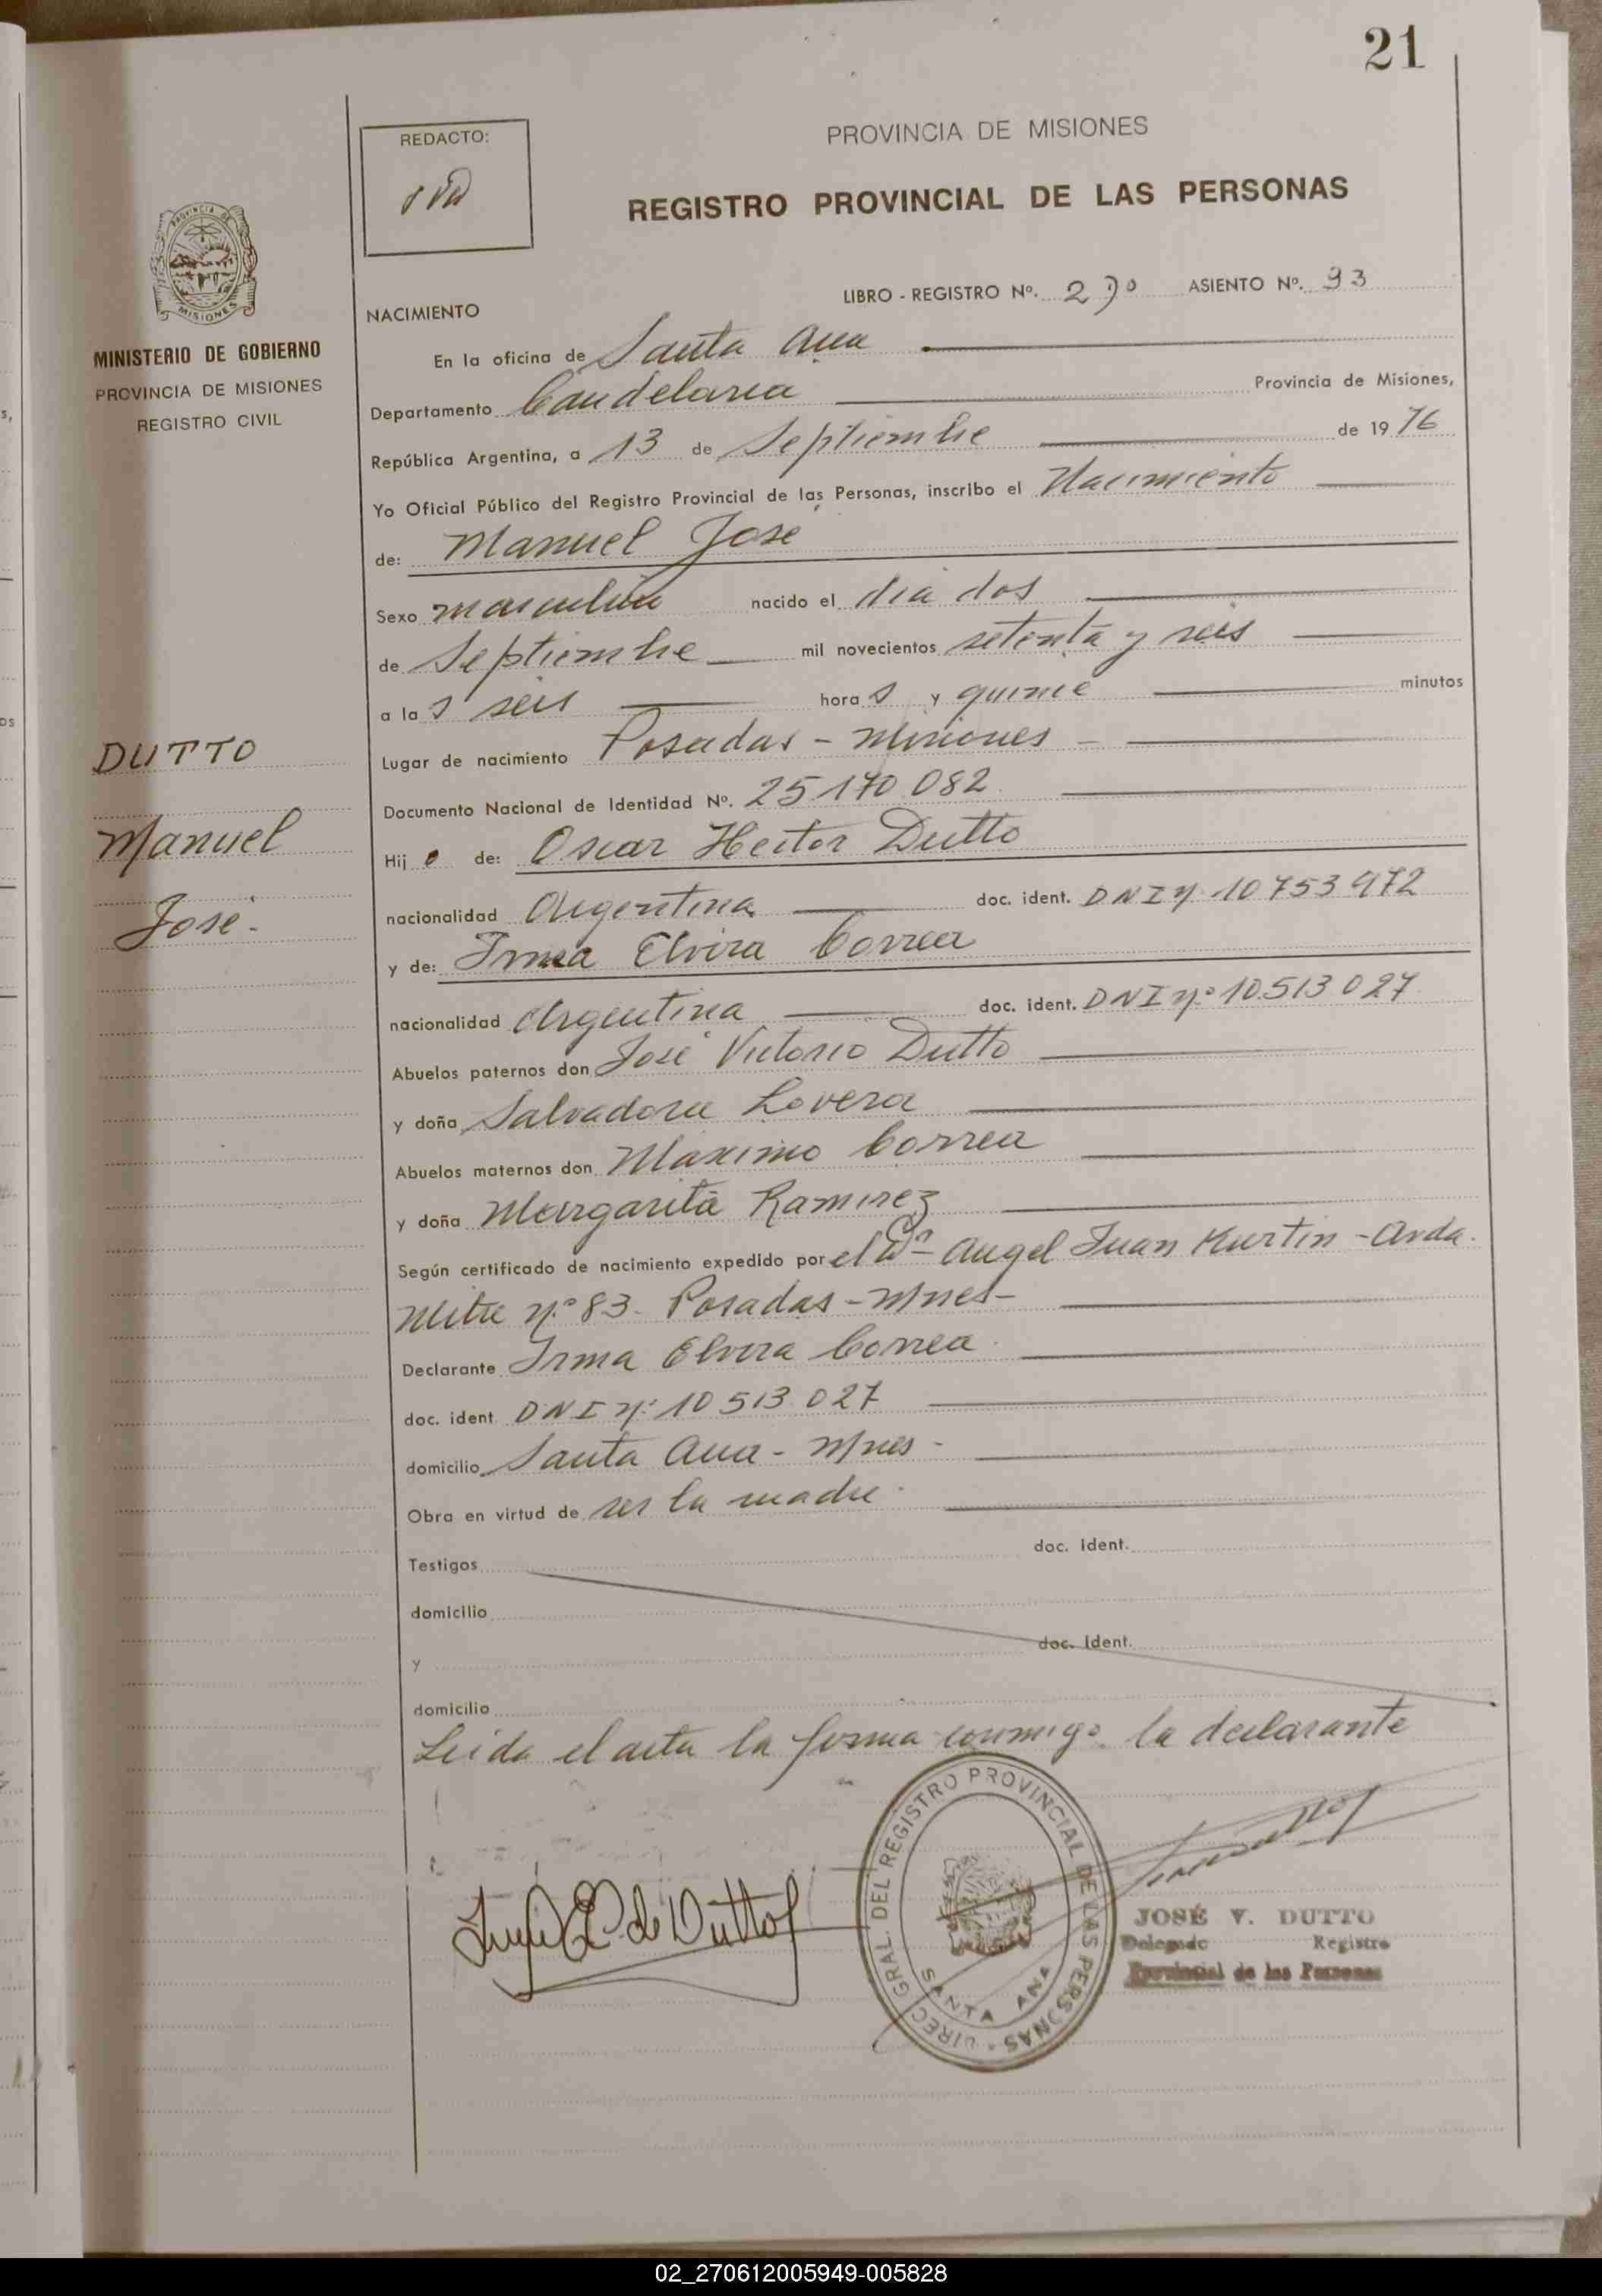 21
REDACTO:
PROVINCIA DE MISIONES
REGISTRO PROVINCIAL DE LAS PERSONAS
PROVINCIA DE
MISIONES
MINISTERIO DE GOBIERNO
PROVINCIA DE MISIONES
REGISTRO CIVIL
DUTTO
Manuel
José.
LIBRO - REGISTRO Nº. ASIENTO Nº. 93
NACIMIENTO
En la oficina de Santa Ana
Departamento Candelaria Provincia de Misiones,
República Argentina, a 13 de Septiembre de 1976
Yo Oficial Público del Registro Provincial de las Personas, inscribo el Nacimiento
de: Manuel José
Sexo masculino nacido el dia dos
de Septiembre mil novecientos setenta y seis
a las seis horas y quince minutos
Lugar de nacimiento Posadas - Misiones -
Documento Nacional de Identidad Nº. 25170082
Hijo de: Oscar Hector Dutto
nacionalidad Argentina doc. ident. DNI nº 10753972
y de: Irma Elvira Correa
nacionalidad Argentina doc. ident. DNI nº 10.513.027
Abuelos paternos don José Victorio Dutto
y doña Salvadora Lovera
Abuelos maternos don Maximo Correa
y doña Margarita Ramirez
Según certificado de nacimiento expedido por el Dr - Angel Juan Kurtin - Avda.
Mitre nº 83 - Posadas - Mnes -
Declarante Irma Elvira Correa
doc. ident DNI nº 10513.027
domicilio Santa Ana - Mnes -
Obra en virtud de ser la madre.
Testigos doc. ident.
domicilio
y doc. ident.
domicilio
Leida el acta la firma conmigo la declarante
de Dutto
DIREC GRAL. DEL REGISTRO PROVINCIAL DE LAS PERSONAS
SANTA ANA
JOSÉ V. DUTTO
Delegado Registro
Provincial de las Personas
02_270612005949-005828